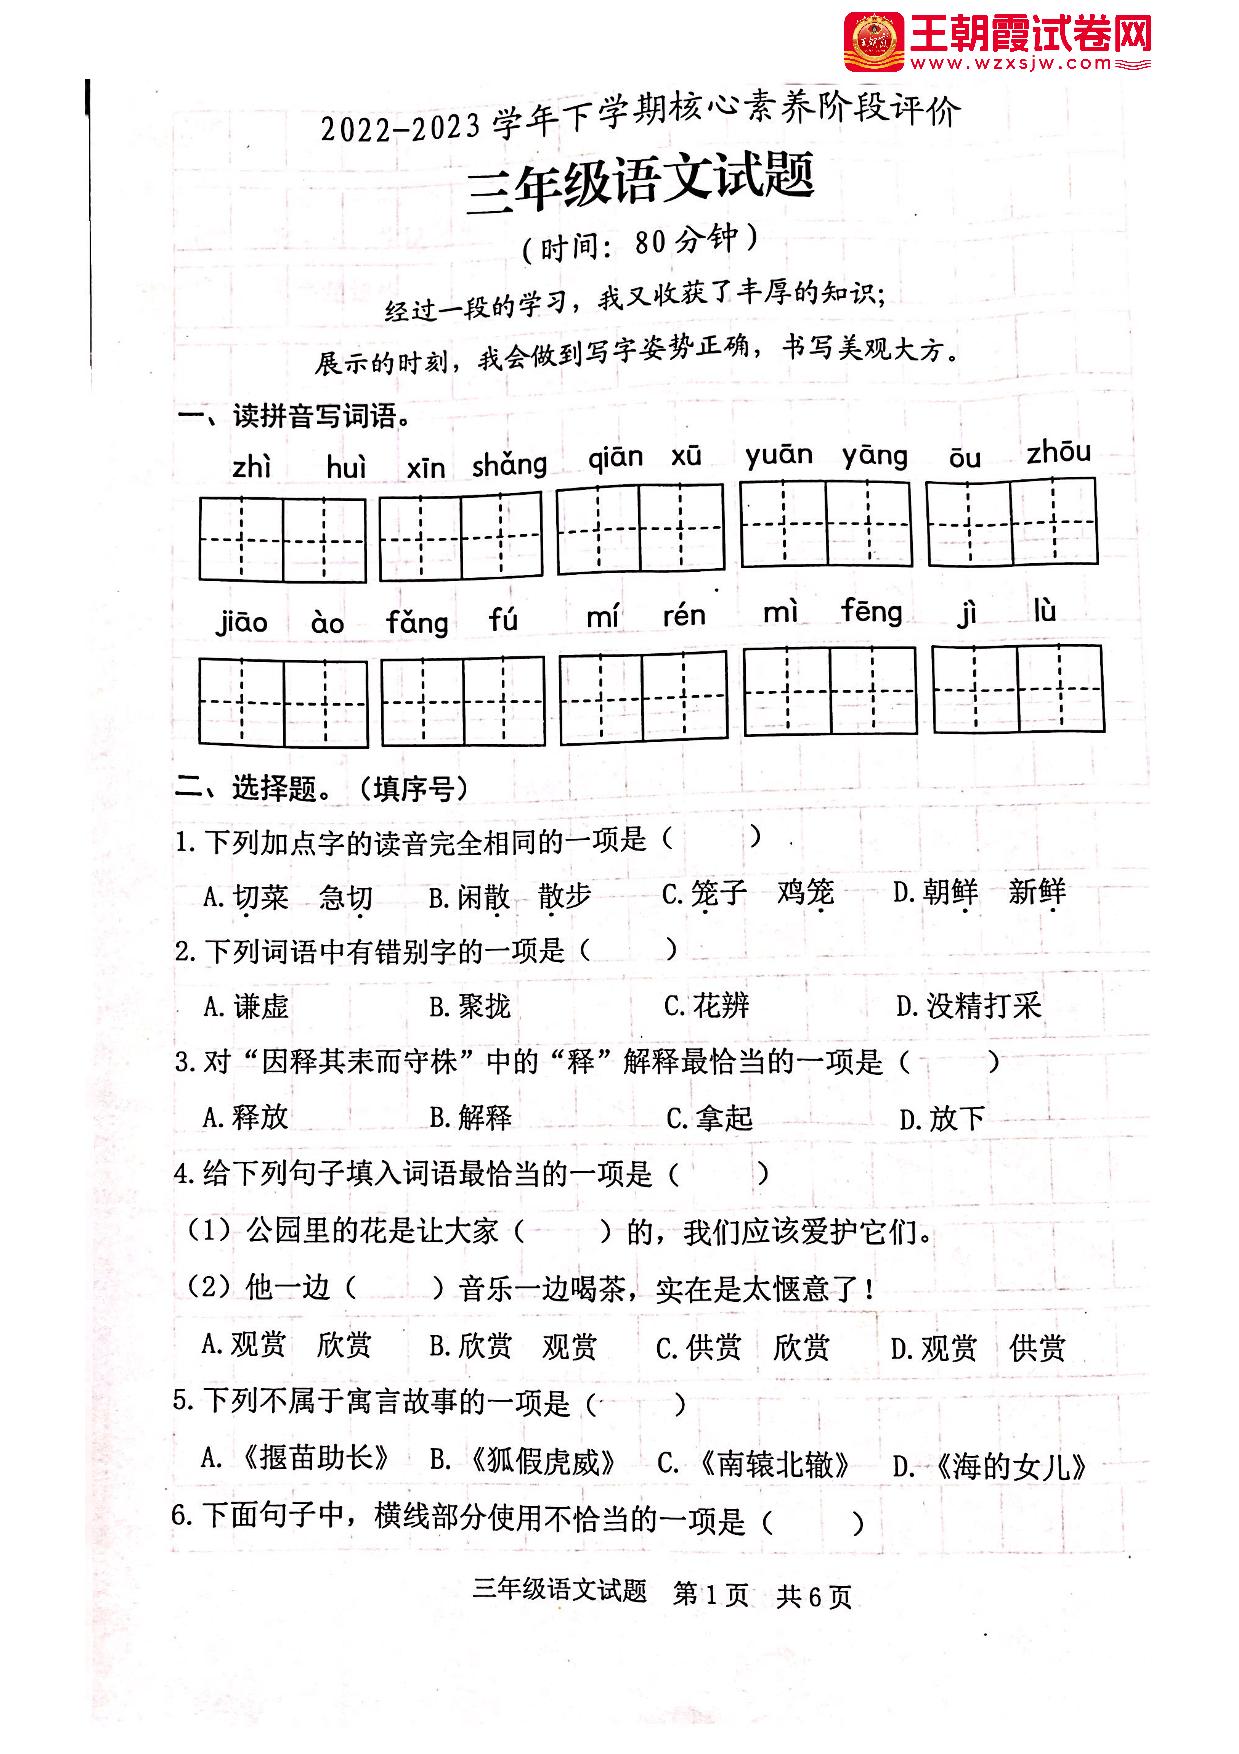 王朝霞试卷网
www.wzxsjw.com
2022-2023学年下学期核心素养阶段评价
三年级语文试题
（时间：80分钟）
经过一段的学习，我又收获了丰厚的知识；
展示的时刻，我会做到写字姿势正确，书写美观大方。
一、读拼音写词语。
zhì huì xīn shǎng qiān xū yuān yāng ōu zhōu
jiāo ào fǎng fú mí rén mì fēng jì lù
二、选择题。（填序号）
1.下列加点字的读音完全相同的一项是（ ）
A.切菜 急切 B.闲散 散步 C.笼子 鸡笼 D.朝鲜 新鲜
2.下列词语中有错别字的一项是（ ）
A.谦虚 B.聚拢 C.花辨 D.没精打采
3.对“因释其耒而守株”中的“释”解释最恰当的一项是（ ）
A.释放 B.解释 C.拿起 D.放下
4.给下列句子填入词语最恰当的一项是（ ）
（1）公园里的花是让大家（ ）的，我们应该爱护它们。
（2）他一边（ ）音乐一边喝茶，实在是太惬意了！
A.观赏 欣赏 B.欣赏 观赏 C.供赏 欣赏 D.观赏 供赏
5.下列不属于寓言故事的一项是（ ）
A.《揠苗助长》 B.《狐假虎威》 C.《南辕北辙》 D.《海的女儿》
6.下面句子中，横线部分使用不恰当的一项是（ ）
三年级语文试题 第1页 共6页